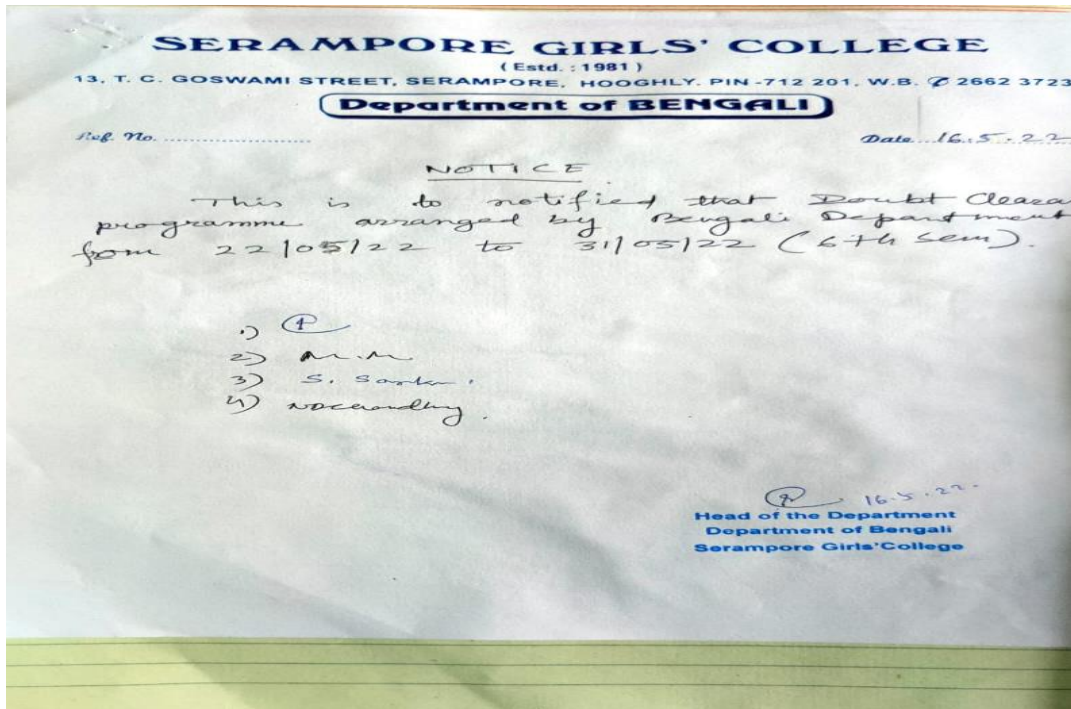 SERAMPORE GIRLS' COLLEGE
(Estd. : 1981)
13, T. C. GOSWAMI STREET, SERAMPORE, HOOGHLY. PIN-712 201, W.B. ✆ 2662 3723
Department of BENGALI
Ref. No. ........................
Date 16.5.22
NOTICE
This is to notified that Doubt Cleara
programme arranged by Bengali Department
from 22/05/22 to 31/05/22 (6th sem).
1)
2) M.M
3) S. Sarkar.
4)
16.5.22.
Head of the Department
Department of Bengali
Serampore Girls'College